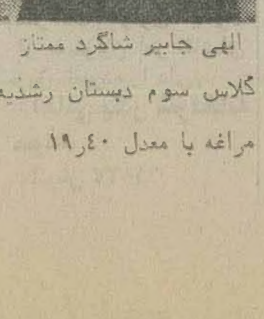 الهی جابیر شاگرد ممتاز
کلاس سوم دبستان رشدیه
مراغه با معدل ۱۹ر۴۰